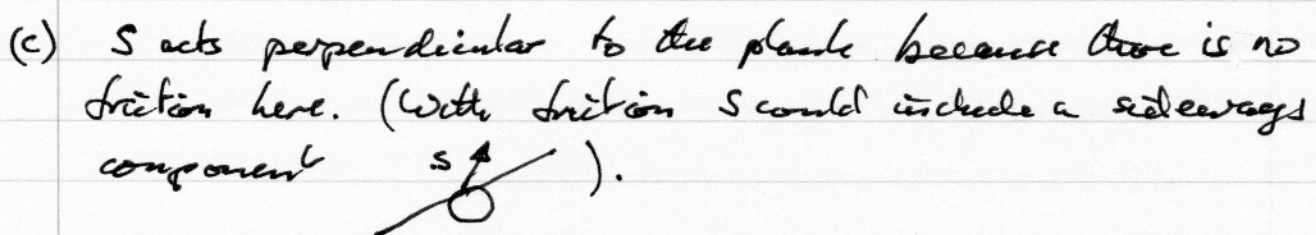 (c) S acts perpendicular to the plank because there is no
friction here. (With friction S could include a sideways
component S ).